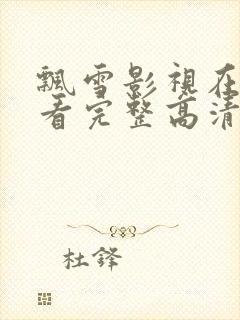 飄雪影視在
看完整高清
杜鋒